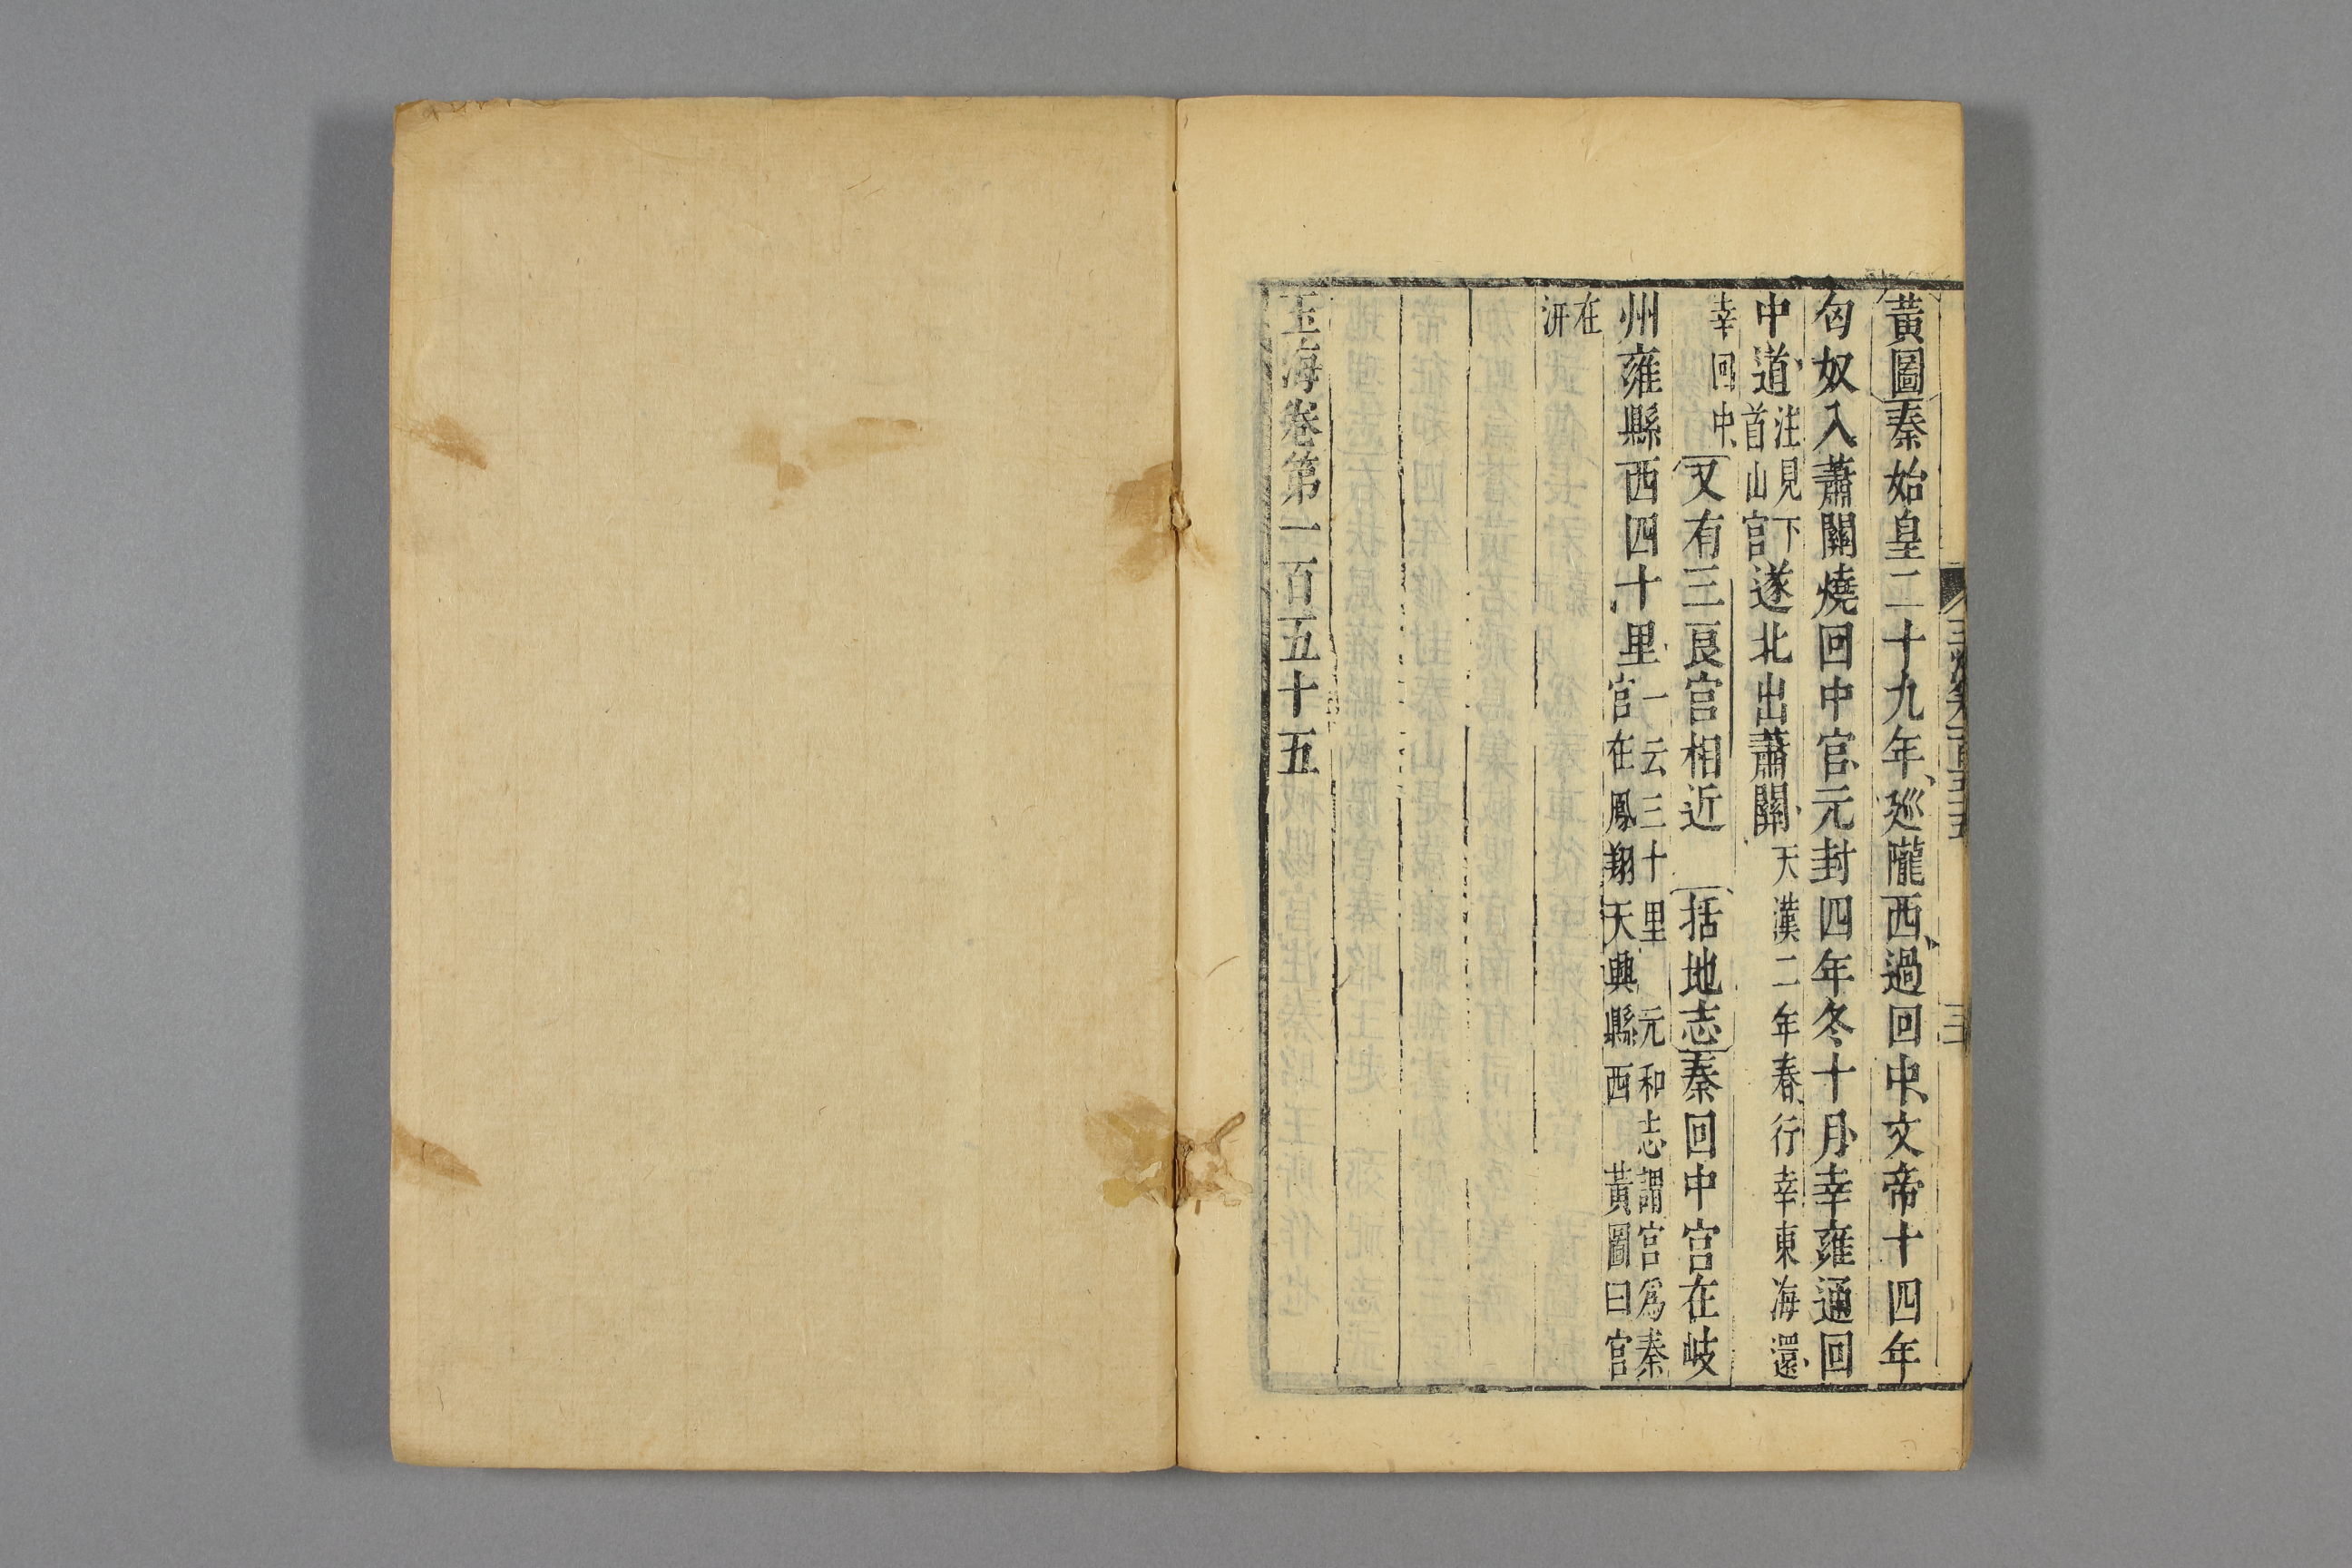 黃圖秦始皇二十九年廵隴西過回中文帝十四年
匈奴入蕭關燒回中宫元封四年冬十月幸雍通回
中道注見下首山宫遂北出蕭關天漢二年春行幸東海還
幸回中又有三良宫相近　括地志秦回中宫在岐
州雍縣西四十里一云三十里　元和志謂宫爲秦宫在鳳翔天興縣西　黃圖曰宫
在汧
玉海卷第一百五十五